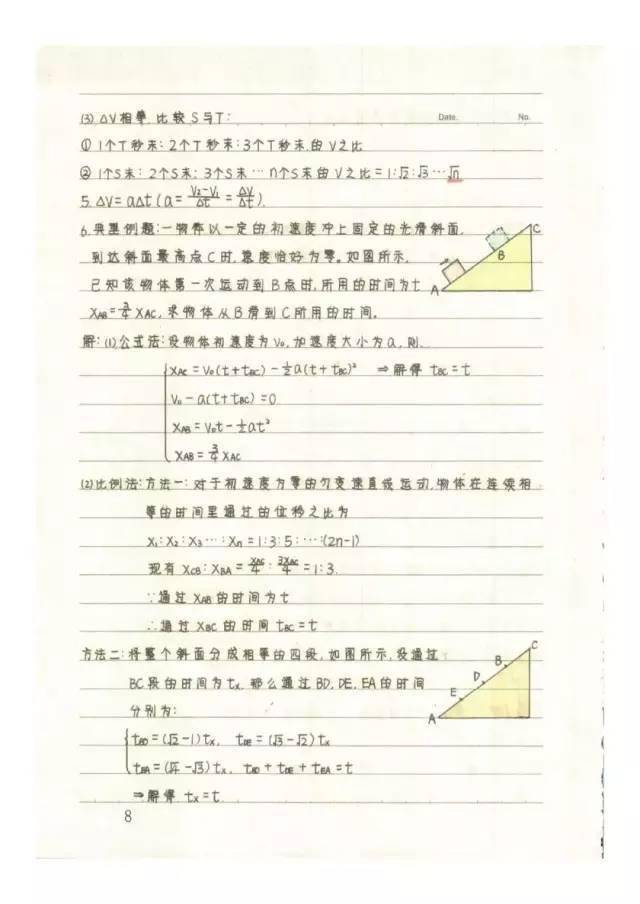 (3) ΔV相等 比较S与T:
Date. No.
① 1个T秒末: 2个T秒末: 3个T秒末的V之比
② 1个S末: 2个S末: 3个S末…n个S末的V之比=1:√2:√3…√n
5. ΔV=aΔt (a=(V₂-V₁)/Δt=ΔV/Δt).
6. 典型例题:一物体以一定的初速度冲上固定的光滑斜面,
到达斜面最高点C时,速度恰好为零。如图所示,
已知该物体第一次运动到B点时,所用的时间为t
X_AB=3/4 X_AC, 求物体从B滑到C所用的时间。
A B C
解:(1)公式法:设物体初速度为V₀,加速度大小为a,则
X_AC=V₀(t+t_BC)-½a(t+t_BC)² ⇒解得 t_BC=t
V₀-a(t+t_BC)=0
X_AB=V₀t-½at²
X_AB=3/4 X_AC
(2)比例法:方法一:对于初速度为零的匀变速直线运动,物体在连续相
等的时间里通过的位移之比为
X₁:X₂:X₃…:Xₙ=1:3:5:…:(2n-1)
现有 X_CB:X_BA=X_AC/4:3X_AC/4=1:3.
∵通过 X_AB 的时间为t
∴通过 X_BC 的时间 t_BC=t
方法二:将整个斜面分成相等的四段,如图所示,设通过
BC段的时间为tₓ,那么通过BD、DE、EA的时间
分别为:
A E D B C
t_BD=(√2-1)tₓ, t_DE=(√3-√2)tₓ
t_EA=(√4-√3)tₓ, t_BD+t_DE+t_EA=t
⇒解得 tₓ=t
8